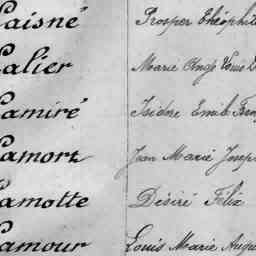 Laisné Prosper Théophile
Lalier Marie Ange
Lamiré Isidore Emile
Lamort Jean Marie Joseph
Lamotte Désiré Félix
Lamour Louis Marie